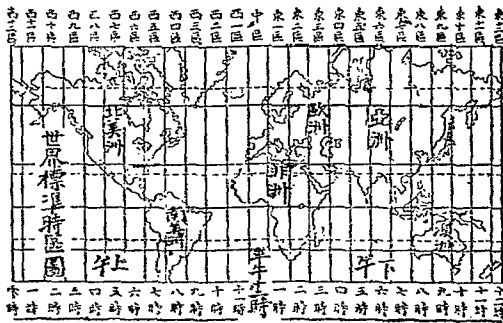 西十二區
西十一區
西十區
西九區
西八區
西七區
西六區
西五區
西四區
西三區
西二區
西一區
中區
東一區
東二區
東三區
東四區
東五區
東六區
東七區
東八區
東九區
東十區
東十一區
東十二區
世界標準時區圖
北美洲
南美洲
歐洲
非洲
亞洲
澳洲
上午
下午
零時
一時
二時
三時
四時
五時
六時
七時
八時
九時
十時
十一時
一時
二時
三時
四時
五時
六時
七時
八時
九時
十時
十一時